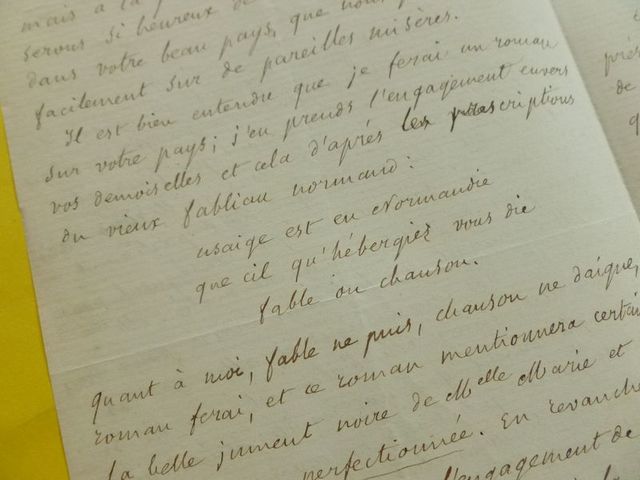 mais à la
serons si heureux de
dans votre beau pays, que nous
facilement sur de pareilles misères.
Il est bien entendre que je ferai un roman
sur votre pays; j'en prends l'engagement envers
vos demoiselles et cela d'après les prescriptions
du vieux fabliau normand:
usaige est en Normandie
que cil qu'hébergiez vous die
fable ou chanson.
quant à moi, fable ne puis, chanson ne daigne,
roman ferai, et ce roman mentionnera certai
la belle jument noire de Melle Marie et
perfectionnée. En revanche
l'engagement de
de